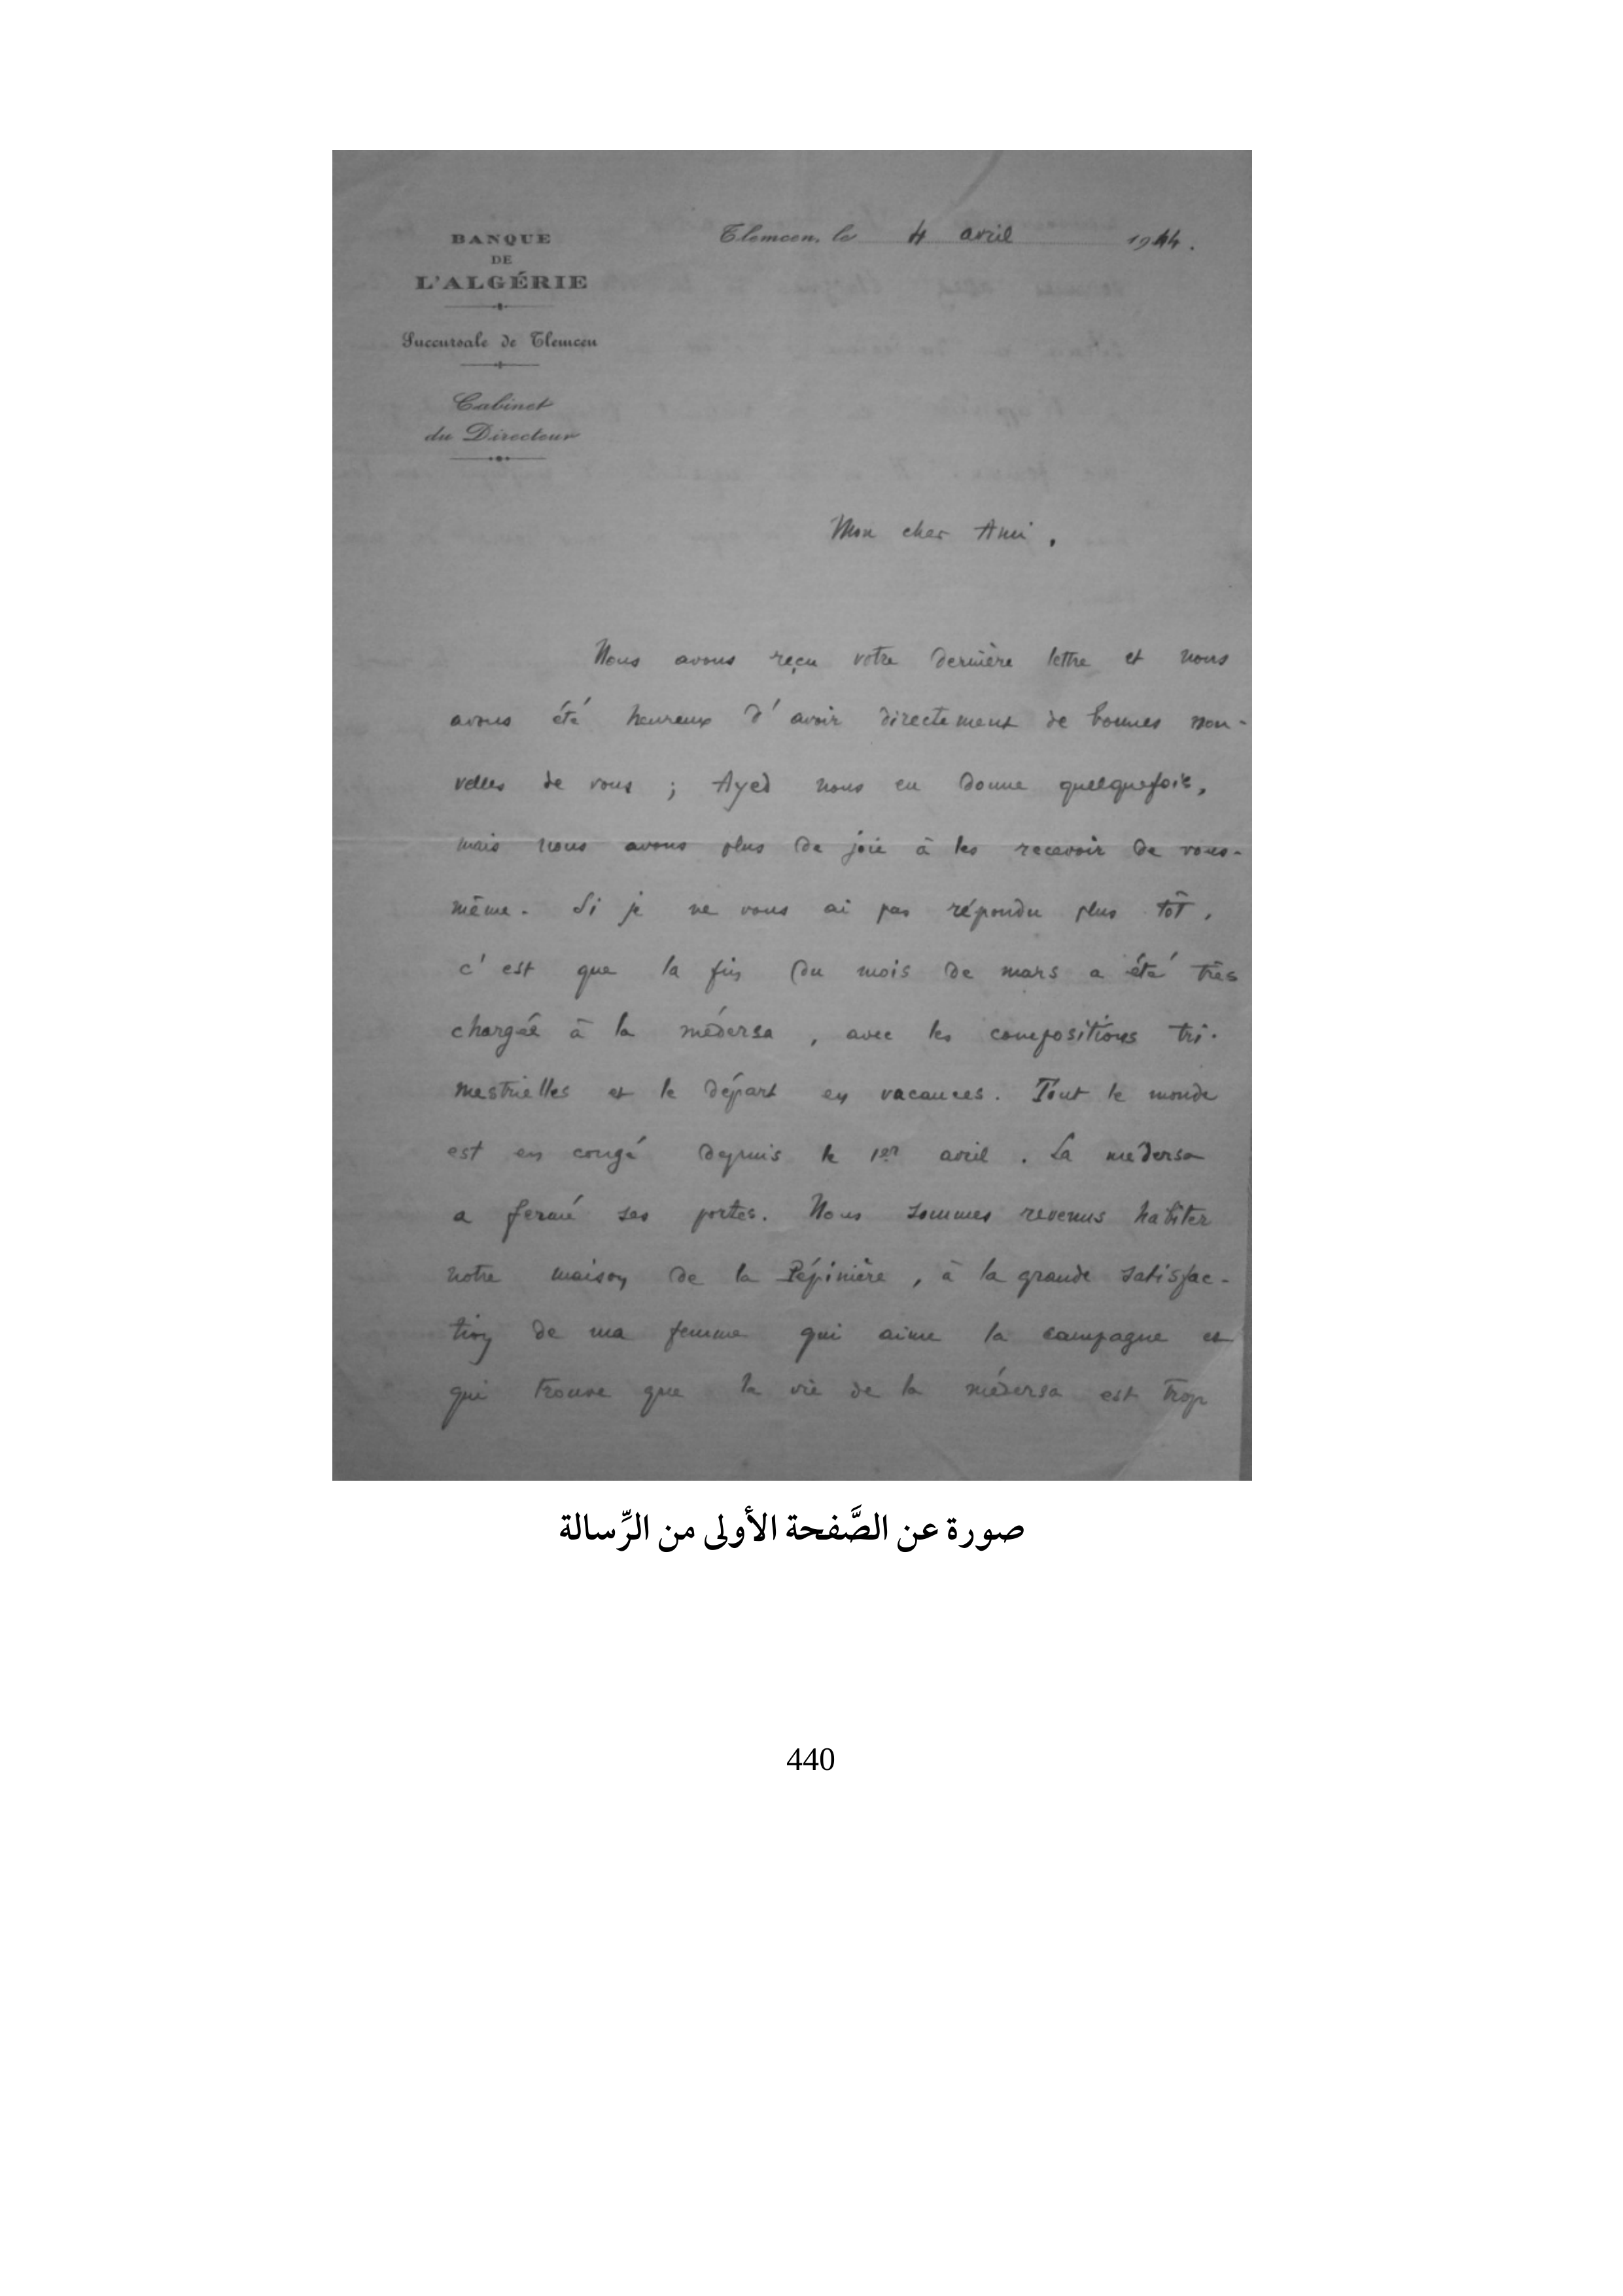 BANQUE
DE
L'ALGÉRIE
Succursale de Tlemcen
Cabinet
du Directeur
Tlemcen, le 4 avril 1944.
Mon cher Ami,
Nous avons reçu votre dernière lettre et nous
avons été heureux d'avoir directement de bonnes nou-
velles de vous ; Ayed nous en donne quelquefois,
mais nous avons plus de joie à les recevoir de vous-
même. Si je ne vous ai pas répondu plus tôt,
c'est que la fin du mois de mars a été très
chargée à la médersa, avec les compositions tri-
mestrielles et le départ en vacances. Tout le monde
est en congé depuis le 1er avril. La medersa
a fermé ses portes. Nous sommes revenus habiter
notre maison de la Pépinière, à la grande satisfac-
tion de ma femme qui aime la campagne et
qui trouve que la vie de la médersa est trop
صورة عن الصَّفحة الأولى من الرِّسالة
440